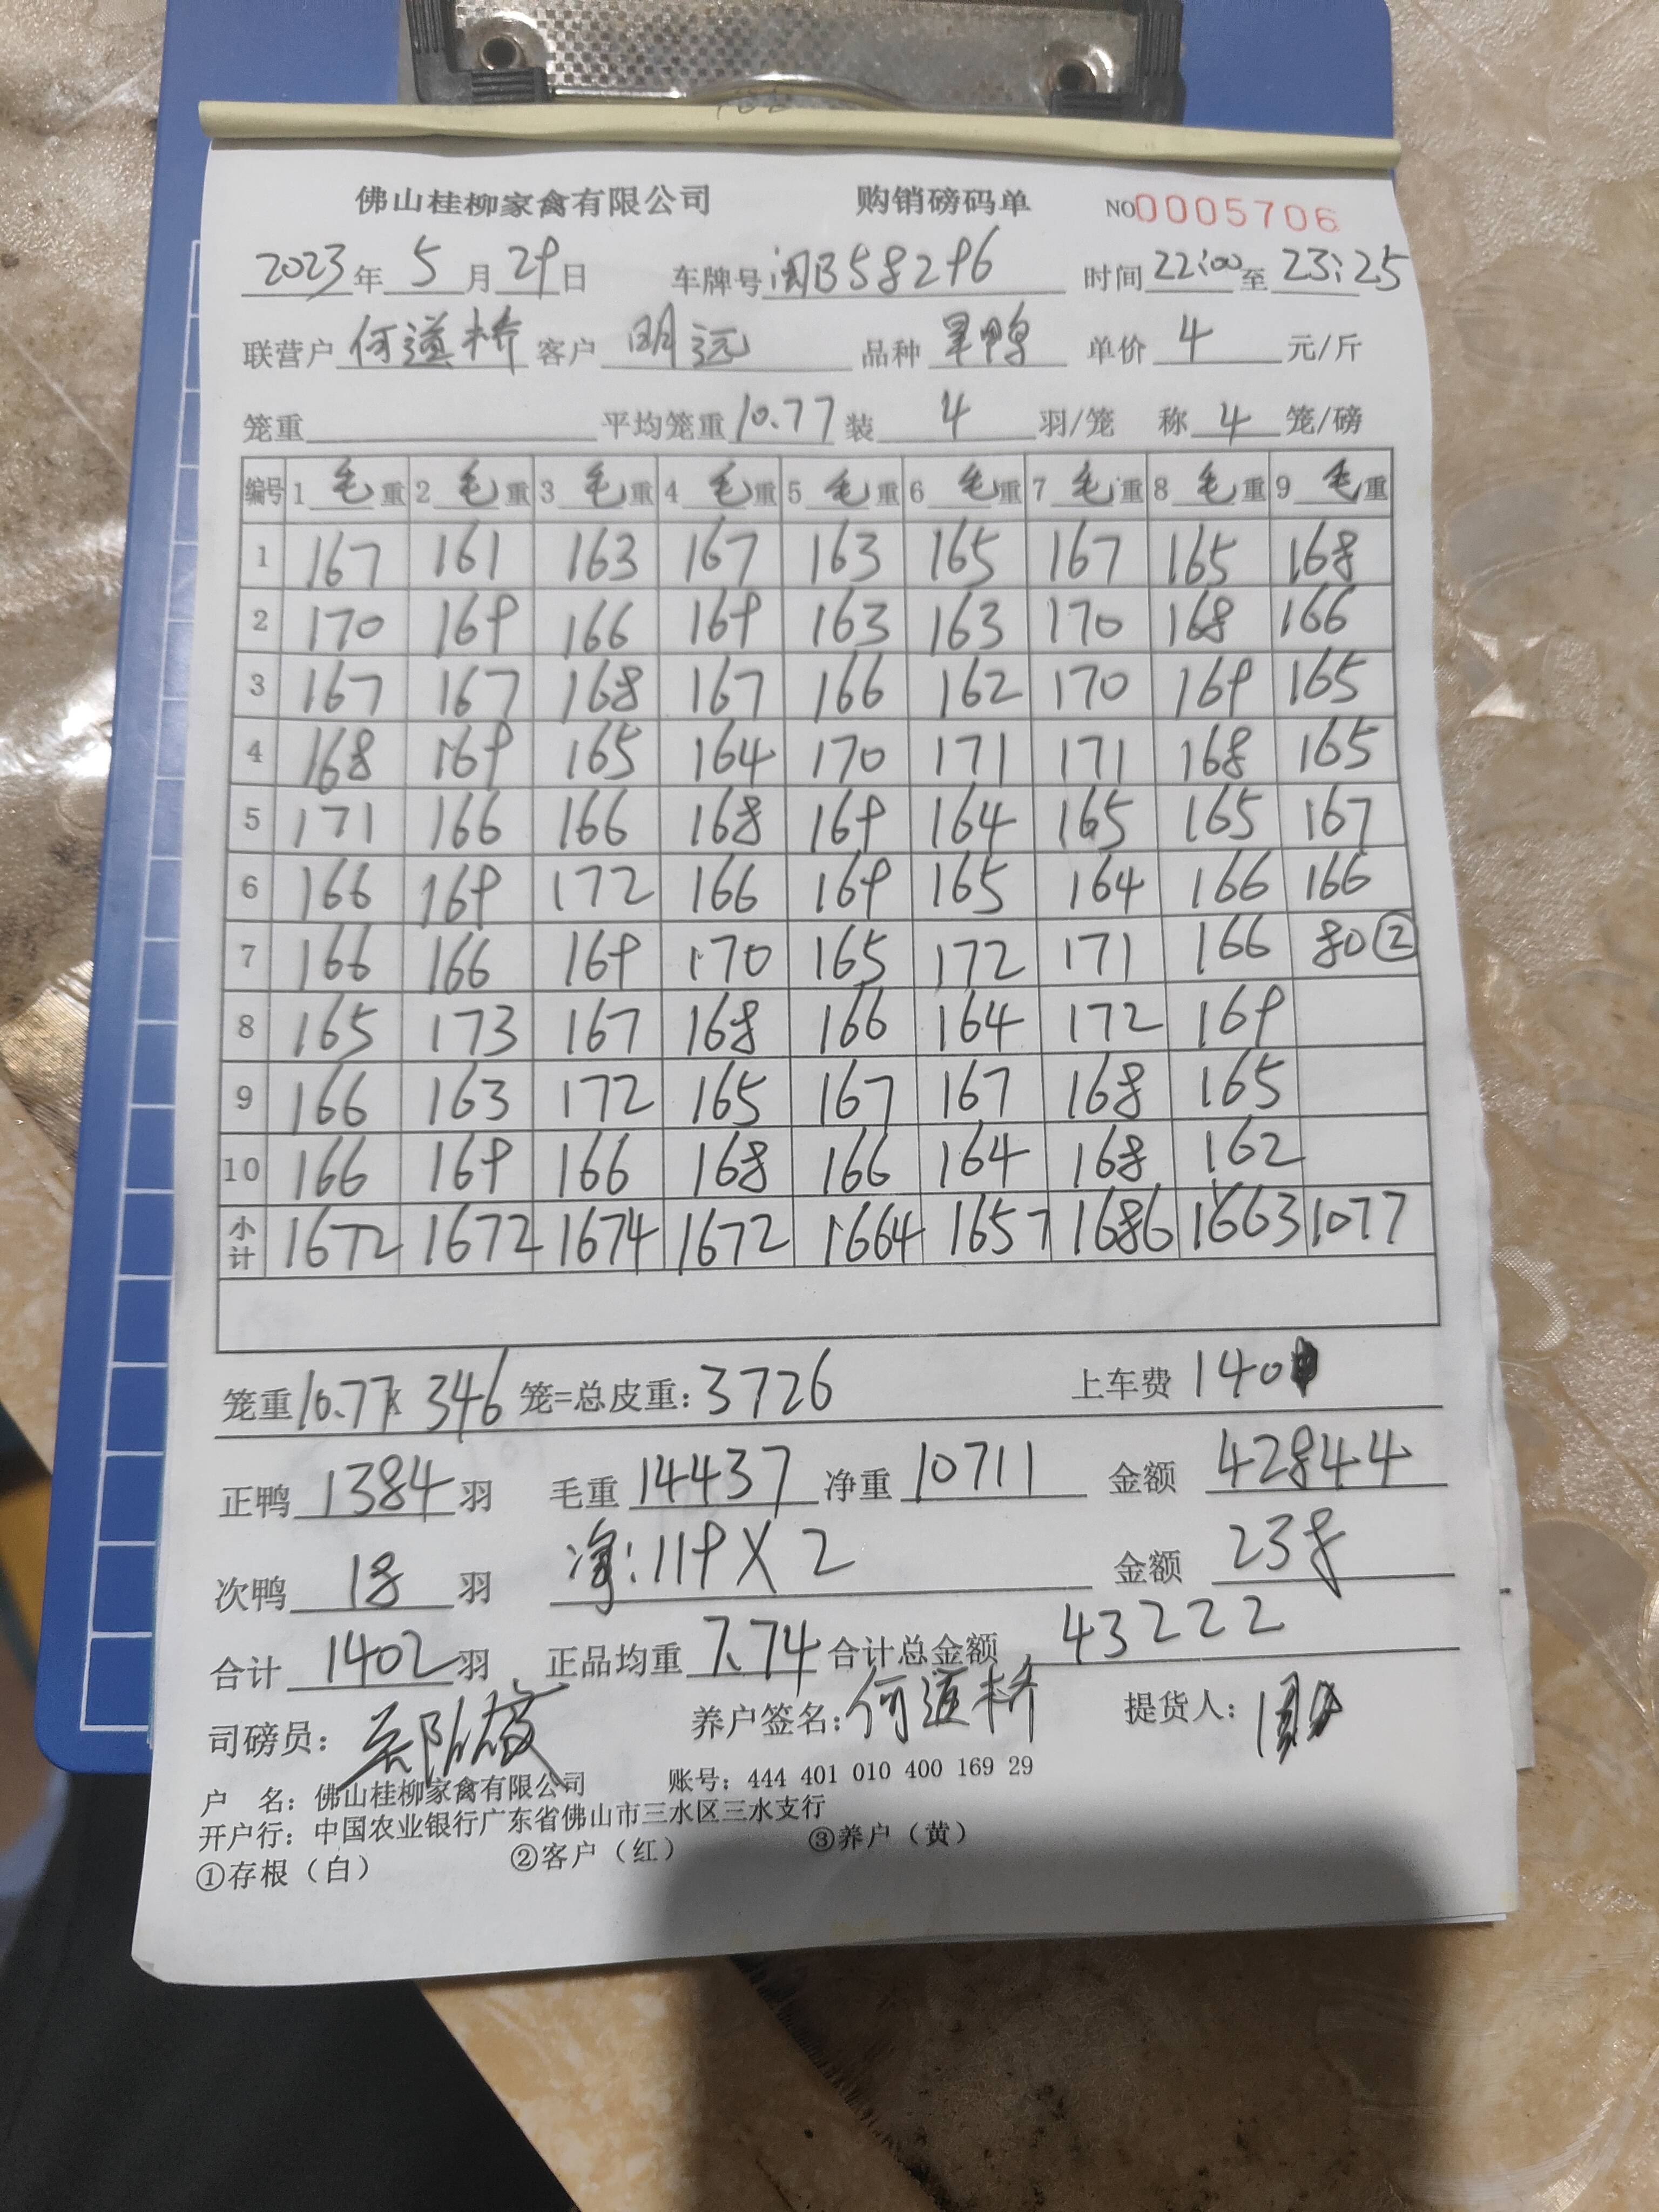 佛山桂柳家禽有限公司 购销磅码单 NO0005706
2023年 5月29日 车牌号闽B58296 时间22:00至23:25
联营户何道桥 客户 明远 品种 旱鸭 单价 4 元/斤
笼重 平均笼重10.77装 4 羽/笼 称 4 笼/磅
编号 1 毛重 2 毛重 3 毛重 4 毛重 5 毛重 6 毛重 7 毛重 8 毛重 9 毛重
1 167 161 163 167 163 165 167 165 168
2 170 169 166 169 163 163 170 168 166
3 167 167 168 167 166 162 170 169 165
4 168 169 165 164 170 171 171 168 165
5 171 166 166 168 169 164 165 165 167
6 166 169 172 166 169 165 164 166 166
7 166 166 169 170 165 172 171 166 80②
8 165 173 167 168 166 164 172 169
9 166 163 172 165 167 167 168 165
10 166 169 166 168 166 164 168 162
小计 1672 1672 1674 1672 1664 1657 1686 1663 1077
笼重10.77x 346 笼=总皮重:3726 上车费 140
正鸭 1384 羽 毛重 14437 净重 10711 金额 42844
次鸭 18 羽 净:119X2 金额 238
合计 1402羽 正品均重 7.74 合计总金额 43222
司磅员: 养户签名:何道桥 提货人:
户 名: 佛山桂柳家禽有限公司 账号: 444 401 010 400 169 29
开户行: 中国农业银行广东省佛山市三水区三水支行
①存根（白） ②客户（红） ③养户（黄）